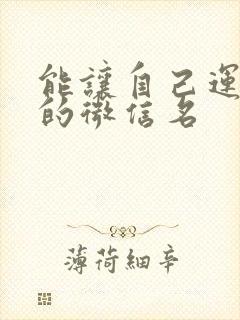 能讓自己運
的微信名
薄荷細辛